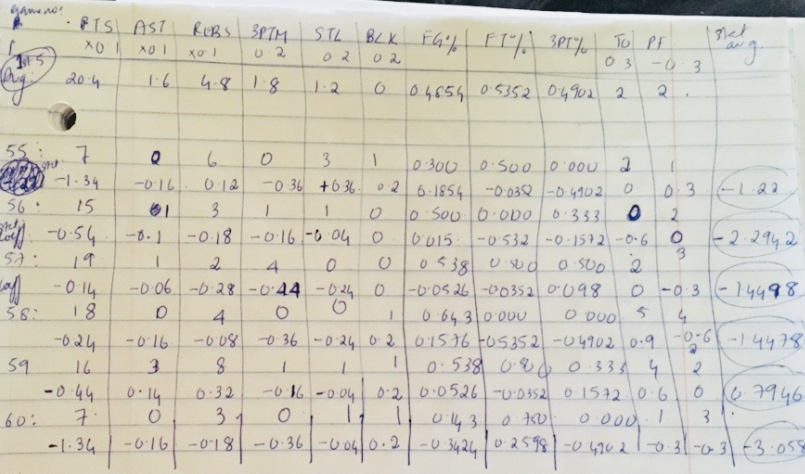 game no: PTS AST REBS 3PTM STL BLK FG% FT% 3PT% TO PF stat avg.
×0.1 ×0.1 ×0.1 0.2 0.2 0.2 0.3 -0.3
1st 5
Avg: 20.4 1.6 4.8 1.8 1.2 0 0.4854 0.5352 0.4902 2 2.
55: 7 0 6 0 3 1 0.300 0.500 0.000 2 1
-1.34 -0.16 0.12 -0.36 +0.36 0.2 0.1854 -0.0352 -0.4902 0 0.3 -1.22
56: 15 01 3 1 1 0 0.500 0.000 0.333 0 2
-0.54 -0.1 -0.18 -0.16 -0.04 0 0.015 -0.532 -0.1572 -0.6 0 -2.2942
57: 19 1 2 4 0 0 0.538 0.500 0.500 2 3
coeff -0.14 -0.06 -0.28 -0.44 -0.24 0 -0.0526 -0.0352 0.098 0 -0.3 -1.4498
58: 18 0 4 0 0 1 0.643 0.000 0.000 5 4
-0.24 -0.16 -0.08 -0.36 -0.24 0.2 0.1576 -0.5352 -0.4902 0.9 -0.6 -1.4478
2
59 16 3 8 1 1 1 0.538 0.500 0.333 4 2
-0.44 0.14 0.32 -0.16 -0.04 0.2 0.0526 -0.0352 0.1572 0.6 0 0.7946
60: 7. 0 3 0 1 1 0.143 0.750 0.000 1 3
-1.34 -0.16 -0.18 -0.36 -0.04 0.2 -0.3424 0.2598 -0.4902 -0.3 -0.3 -3.055